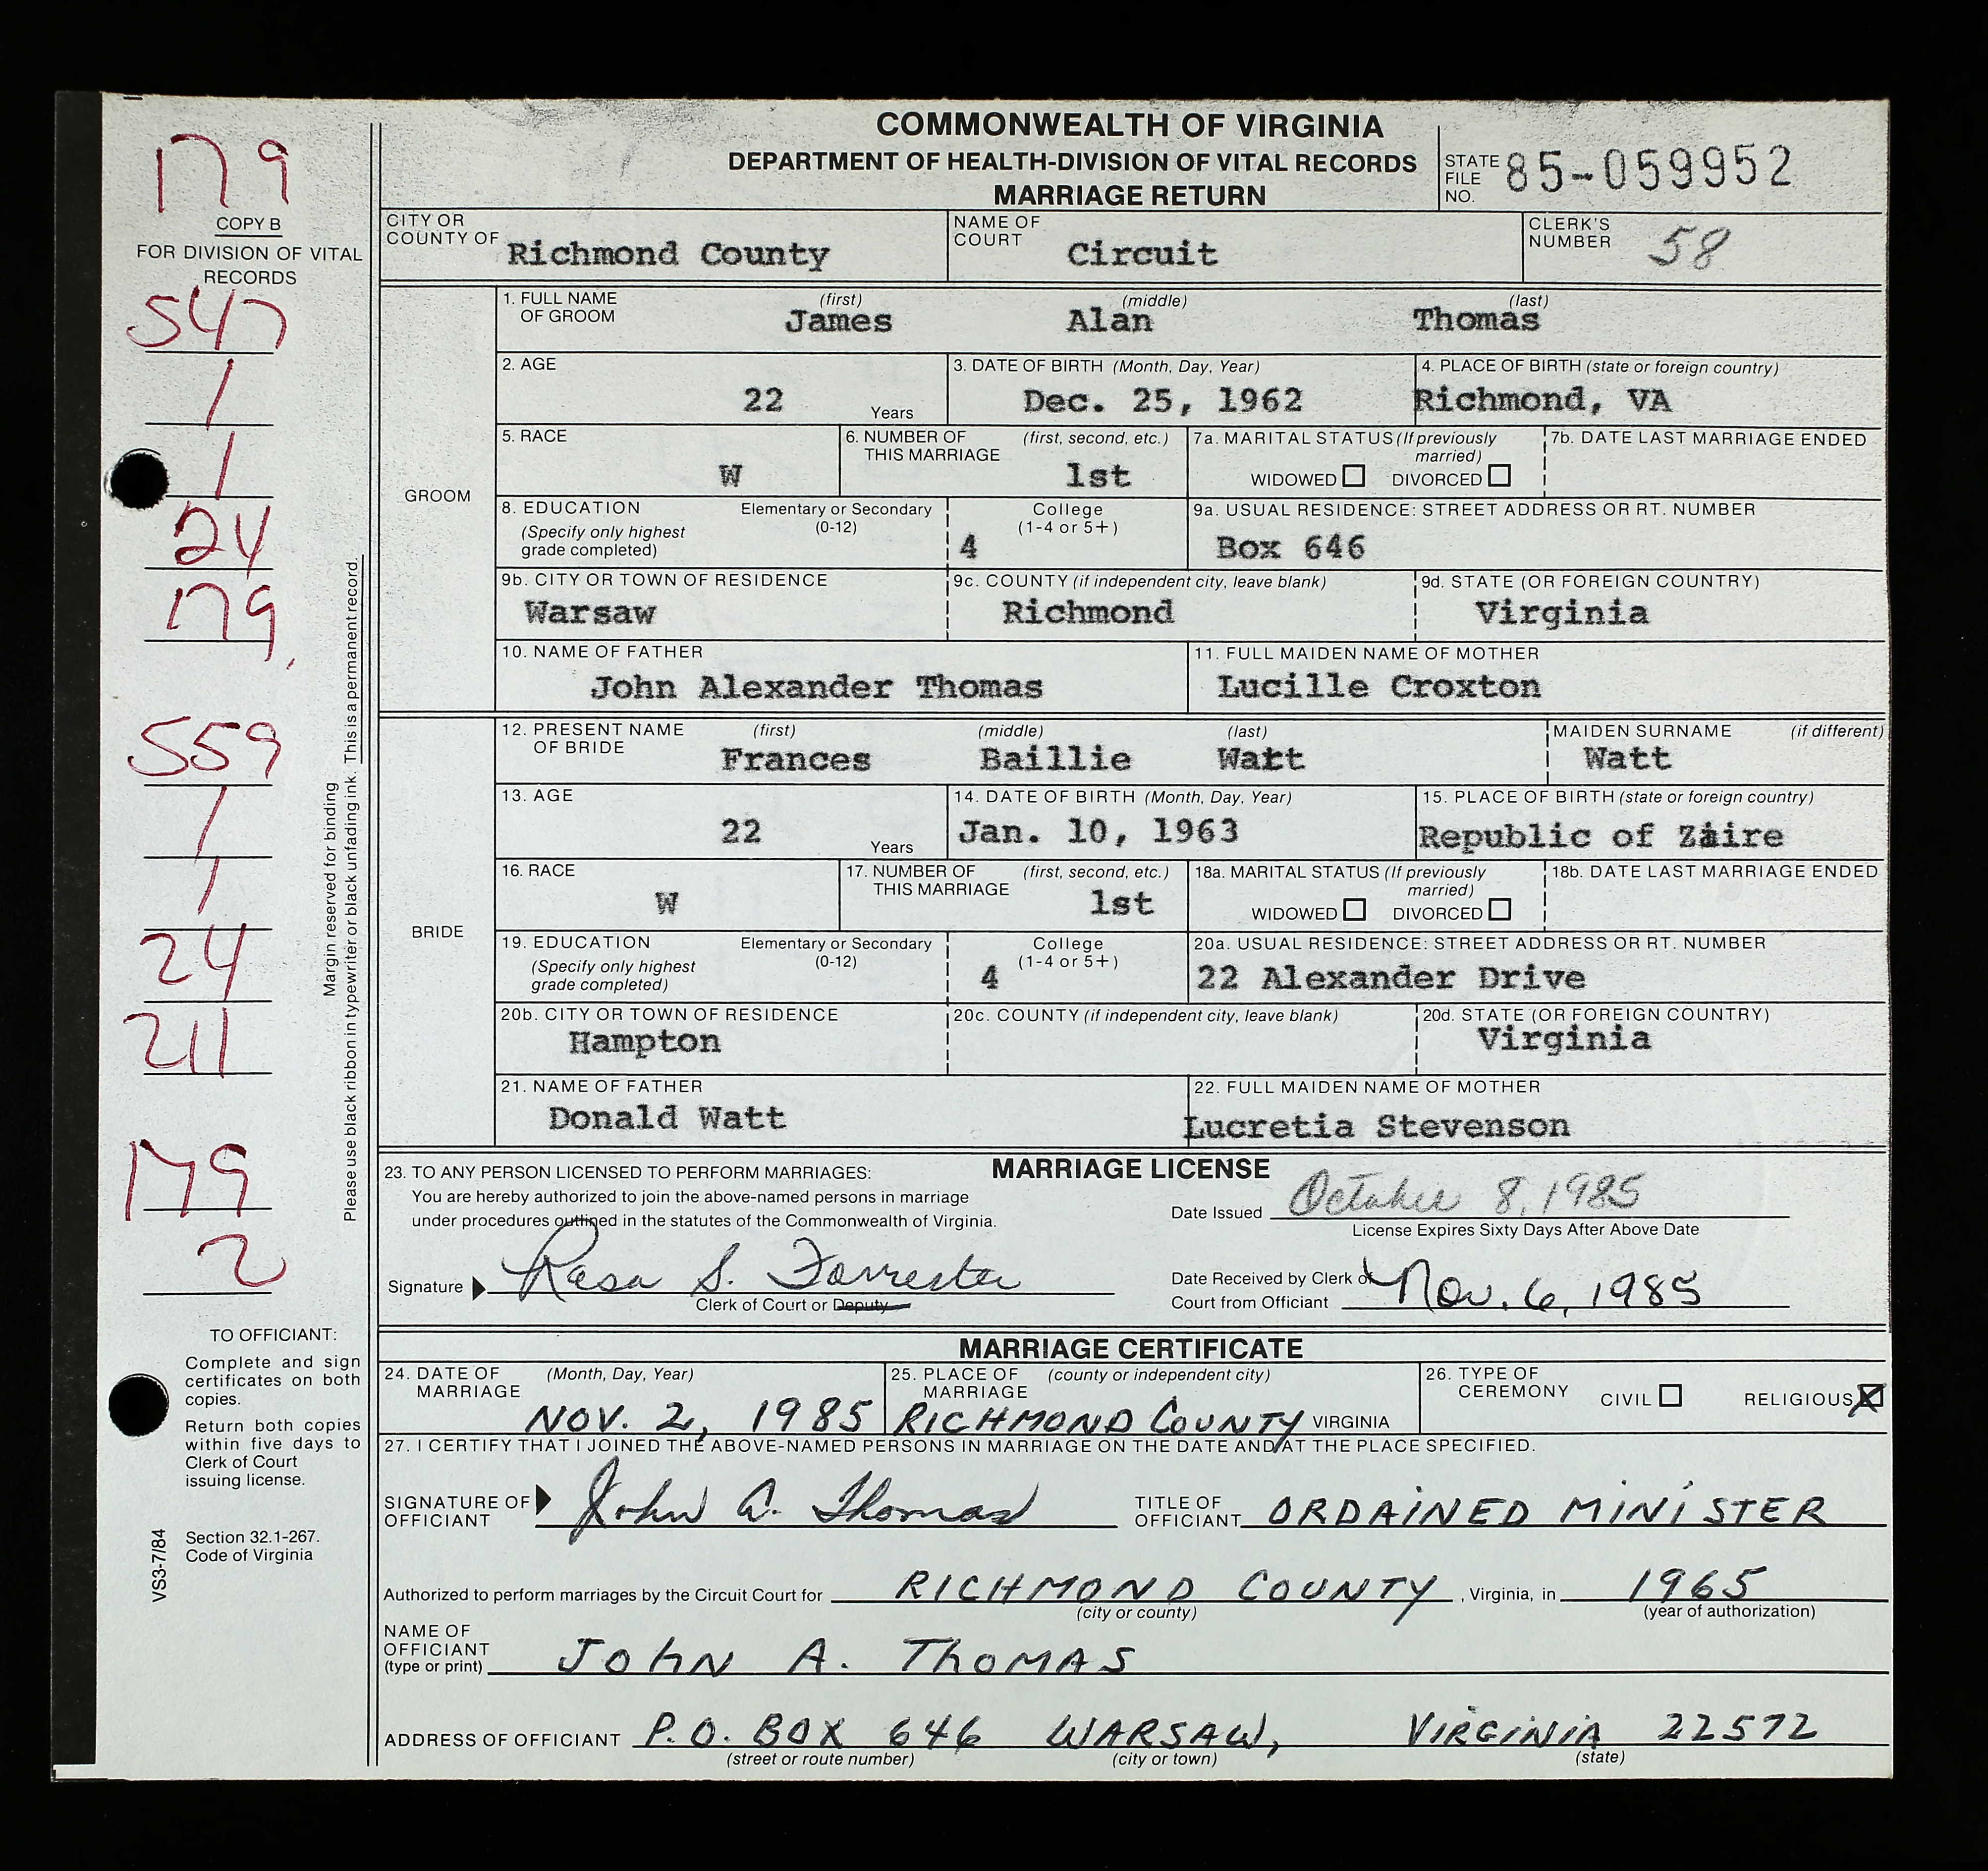 COMMONWEALTH OF VIRGINIA
DEPARTMENT OF HEALTH-DIVISION OF VITAL RECORDS
MARRIAGE RETURN
STATE FILE NO. 85-059952
179
COPY B
FOR DIVISION OF VITAL RECORDS
547
1
1
24
179
559
1
1
24
211
179
2
Margin reserved for binding
Please use black ribbon in typewriter or black unfading ink. This is a permanent record.
TO OFFICIANT:
Complete and sign
certificates on both
copies.
Return both copies
within five days to
Clerk of Court
issuing license.
Section 32.1-267.
Code of Virginia
VS3-7/84
CITY OR COUNTY OF Richmond County
NAME OF COURT Circuit
CLERK'S NUMBER 58
GROOM
1. FULL NAME OF GROOM (first) James (middle) Alan (last) Thomas
2. AGE 22 Years
3. DATE OF BIRTH (Month, Day, Year) Dec. 25, 1962
4. PLACE OF BIRTH (state or foreign country) Richmond, VA
5. RACE W
6. NUMBER OF THIS MARRIAGE (first, second, etc.) 1st
7a. MARITAL STATUS (If previously married) WIDOWED DIVORCED
7b. DATE LAST MARRIAGE ENDED
8. EDUCATION (Specify only highest grade completed) Elementary or Secondary (0-12) College (1-4 or 5+) 4
9a. USUAL RESIDENCE: STREET ADDRESS OR RT. NUMBER Box 646
9b. CITY OR TOWN OF RESIDENCE Warsaw
9c. COUNTY (if independent city, leave blank) Richmond
9d. STATE (OR FOREIGN COUNTRY) Virginia
10. NAME OF FATHER John Alexander Thomas
11. FULL MAIDEN NAME OF MOTHER Lucille Croxton
BRIDE
12. PRESENT NAME OF BRIDE (first) Frances (middle) Baillie (last) Watt
MAIDEN SURNAME (if different) Watt
13. AGE 22 Years
14. DATE OF BIRTH (Month, Day, Year) Jan. 10, 1963
15. PLACE OF BIRTH (state or foreign country) Republic of Zaire
16. RACE W
17. NUMBER OF THIS MARRIAGE (first, second, etc.) 1st
18a. MARITAL STATUS (If previously married) WIDOWED DIVORCED
18b. DATE LAST MARRIAGE ENDED
19. EDUCATION (Specify only highest grade completed) Elementary or Secondary (0-12) College (1-4 or 5+) 4
20a. USUAL RESIDENCE: STREET ADDRESS OR RT. NUMBER 22 Alexander Drive
20b. CITY OR TOWN OF RESIDENCE Hampton
20c. COUNTY (if independent city, leave blank)
20d. STATE (OR FOREIGN COUNTRY) Virginia
21. NAME OF FATHER Donald Watt
22. FULL MAIDEN NAME OF MOTHER Lucretia Stevenson
MARRIAGE LICENSE
23. TO ANY PERSON LICENSED TO PERFORM MARRIAGES:
You are hereby authorized to join the above-named persons in marriage
under procedures outlined in the statutes of the Commonwealth of Virginia.
Date Issued October 8, 1985
License Expires Sixty Days After Above Date
Signature Rosa S. Forrester
Clerk of Court or Deputy
Date Received by Clerk of Court from Officiant Nov. 6, 1985
MARRIAGE CERTIFICATE
24. DATE OF MARRIAGE (Month, Day, Year) NOV. 2, 1985
25. PLACE OF MARRIAGE (county or independent city) RICHMOND COUNTY VIRGINIA
26. TYPE OF CEREMONY CIVIL RELIGIOUS X
27. I CERTIFY THAT I JOINED THE ABOVE-NAMED PERSONS IN MARRIAGE ON THE DATE AND AT THE PLACE SPECIFIED.
SIGNATURE OF OFFICIANT John A. Thomas
TITLE OF OFFICIANT ORDAINED MINISTER
Authorized to perform marriages by the Circuit Court for RICHMOND COUNTY, Virginia, in 1965
(city or county) (year of authorization)
NAME OF OFFICIANT (type or print) JOHN A. THOMAS
ADDRESS OF OFFICIANT P.O. BOX 646 WARSAW, VIRGINIA 22572
(street or route number) (city or town) (state)